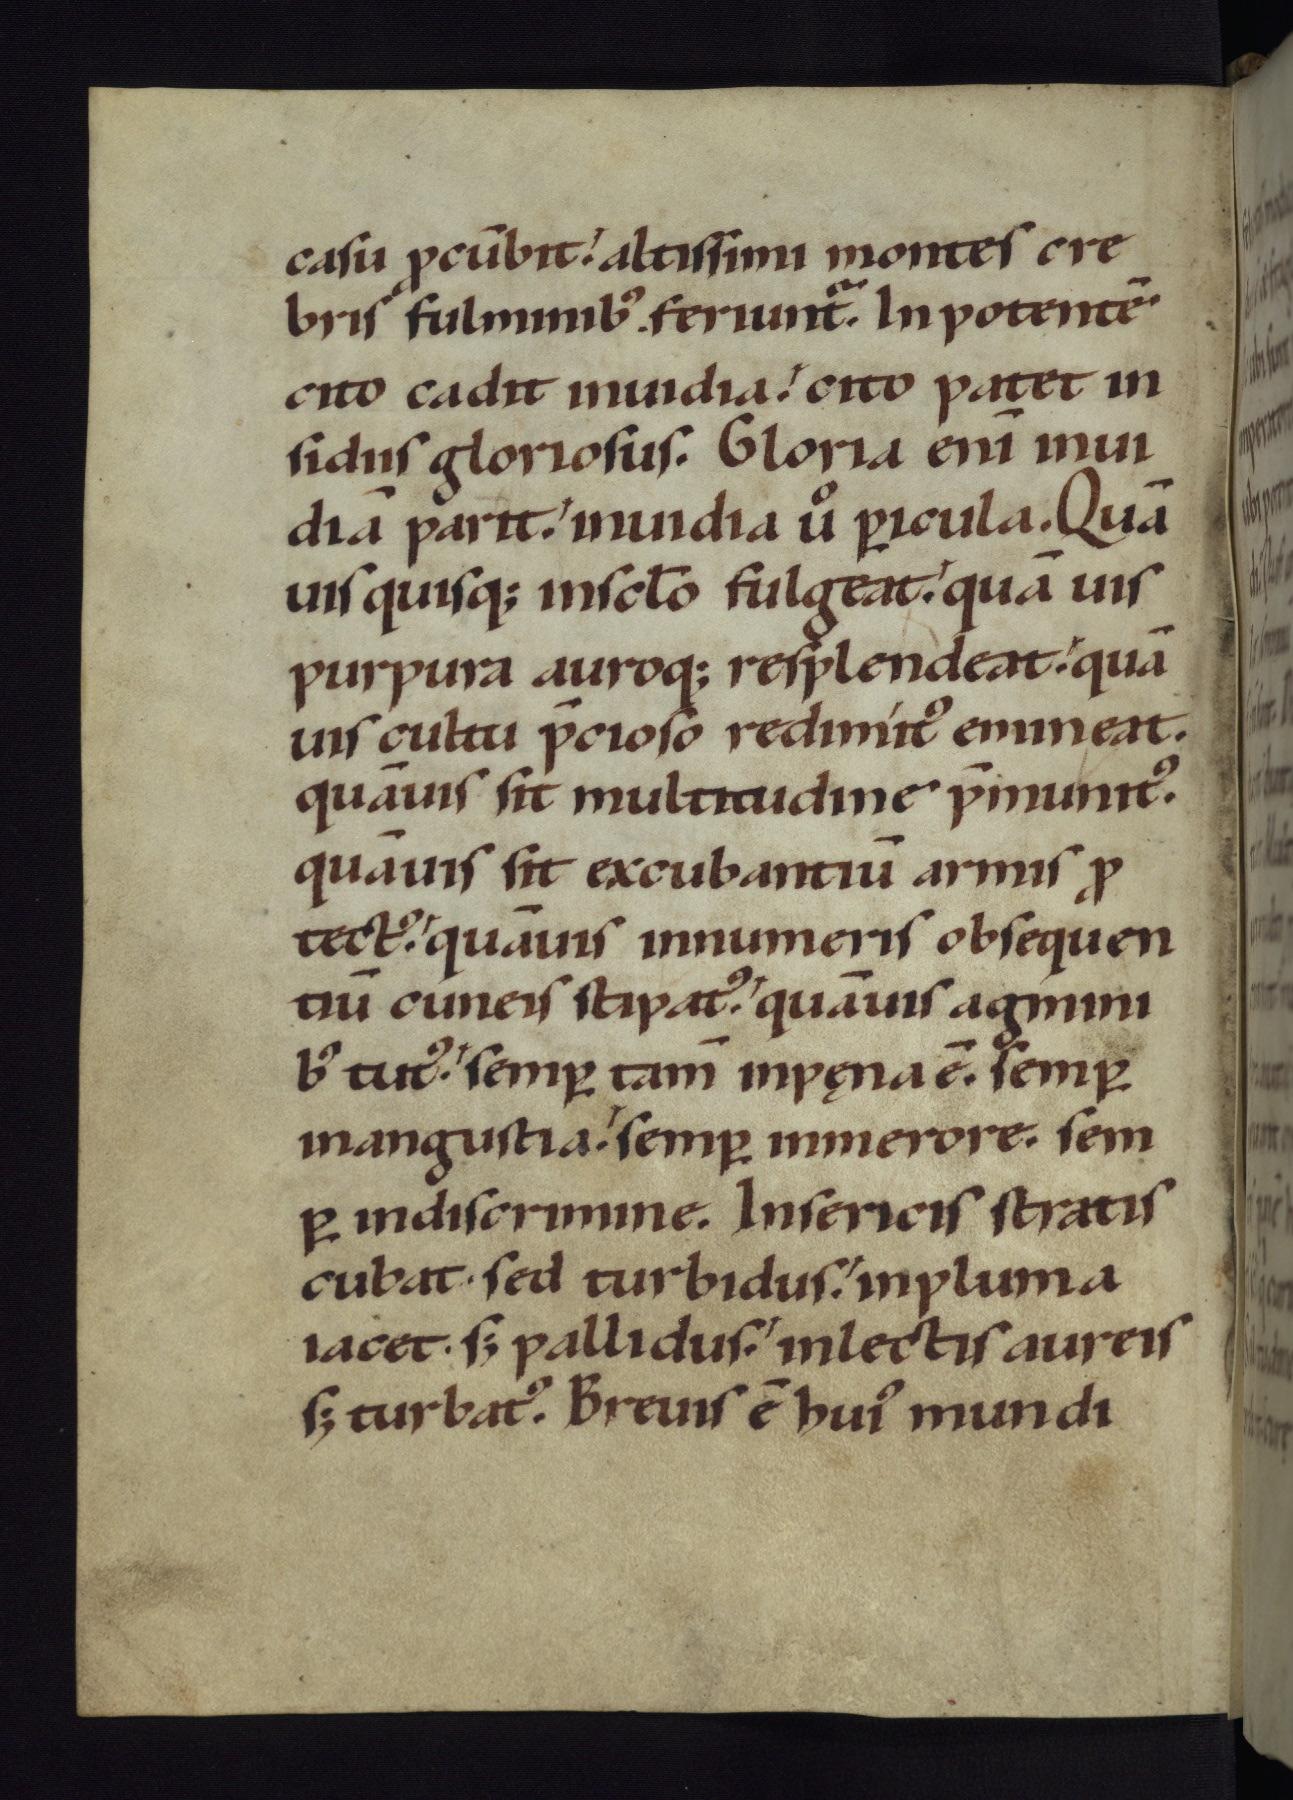 casu ꝓcūbit. altissimi montes cre
bris fulminibꝰ. feriunt᷑. In potentē
cito cadit inuidia. cito patet in
sidiis gloriosus. Gloria enī inui
diā parit. inuidia u̾o ꝑicula. Quā
uis quisq; insclō fulgeat. quā uis
purpura auroq; resplendeat. quā
uis cultu p̄cioso redimitꝰ emineat.
quāuis sit multitudine p̄munitꝰ.
quāuis sit excubantiū armis ꝓ
tectꝰ. quāuis innumeris obsequen
tiū cuneis stipatꝰ. quāuis agmini
bꝰ tutꝰ. semꝑ tam̄ inpęna ē. semꝑ
inangustia. semꝑ inmerore. sem
ꝑ indiscrimine. Insericis stratis
cubat. sed turbidus. inpluma
iacet. s; pallidus. inlectis aureis
s; turbatꝰ. Breuis ē huiꝰ mundi